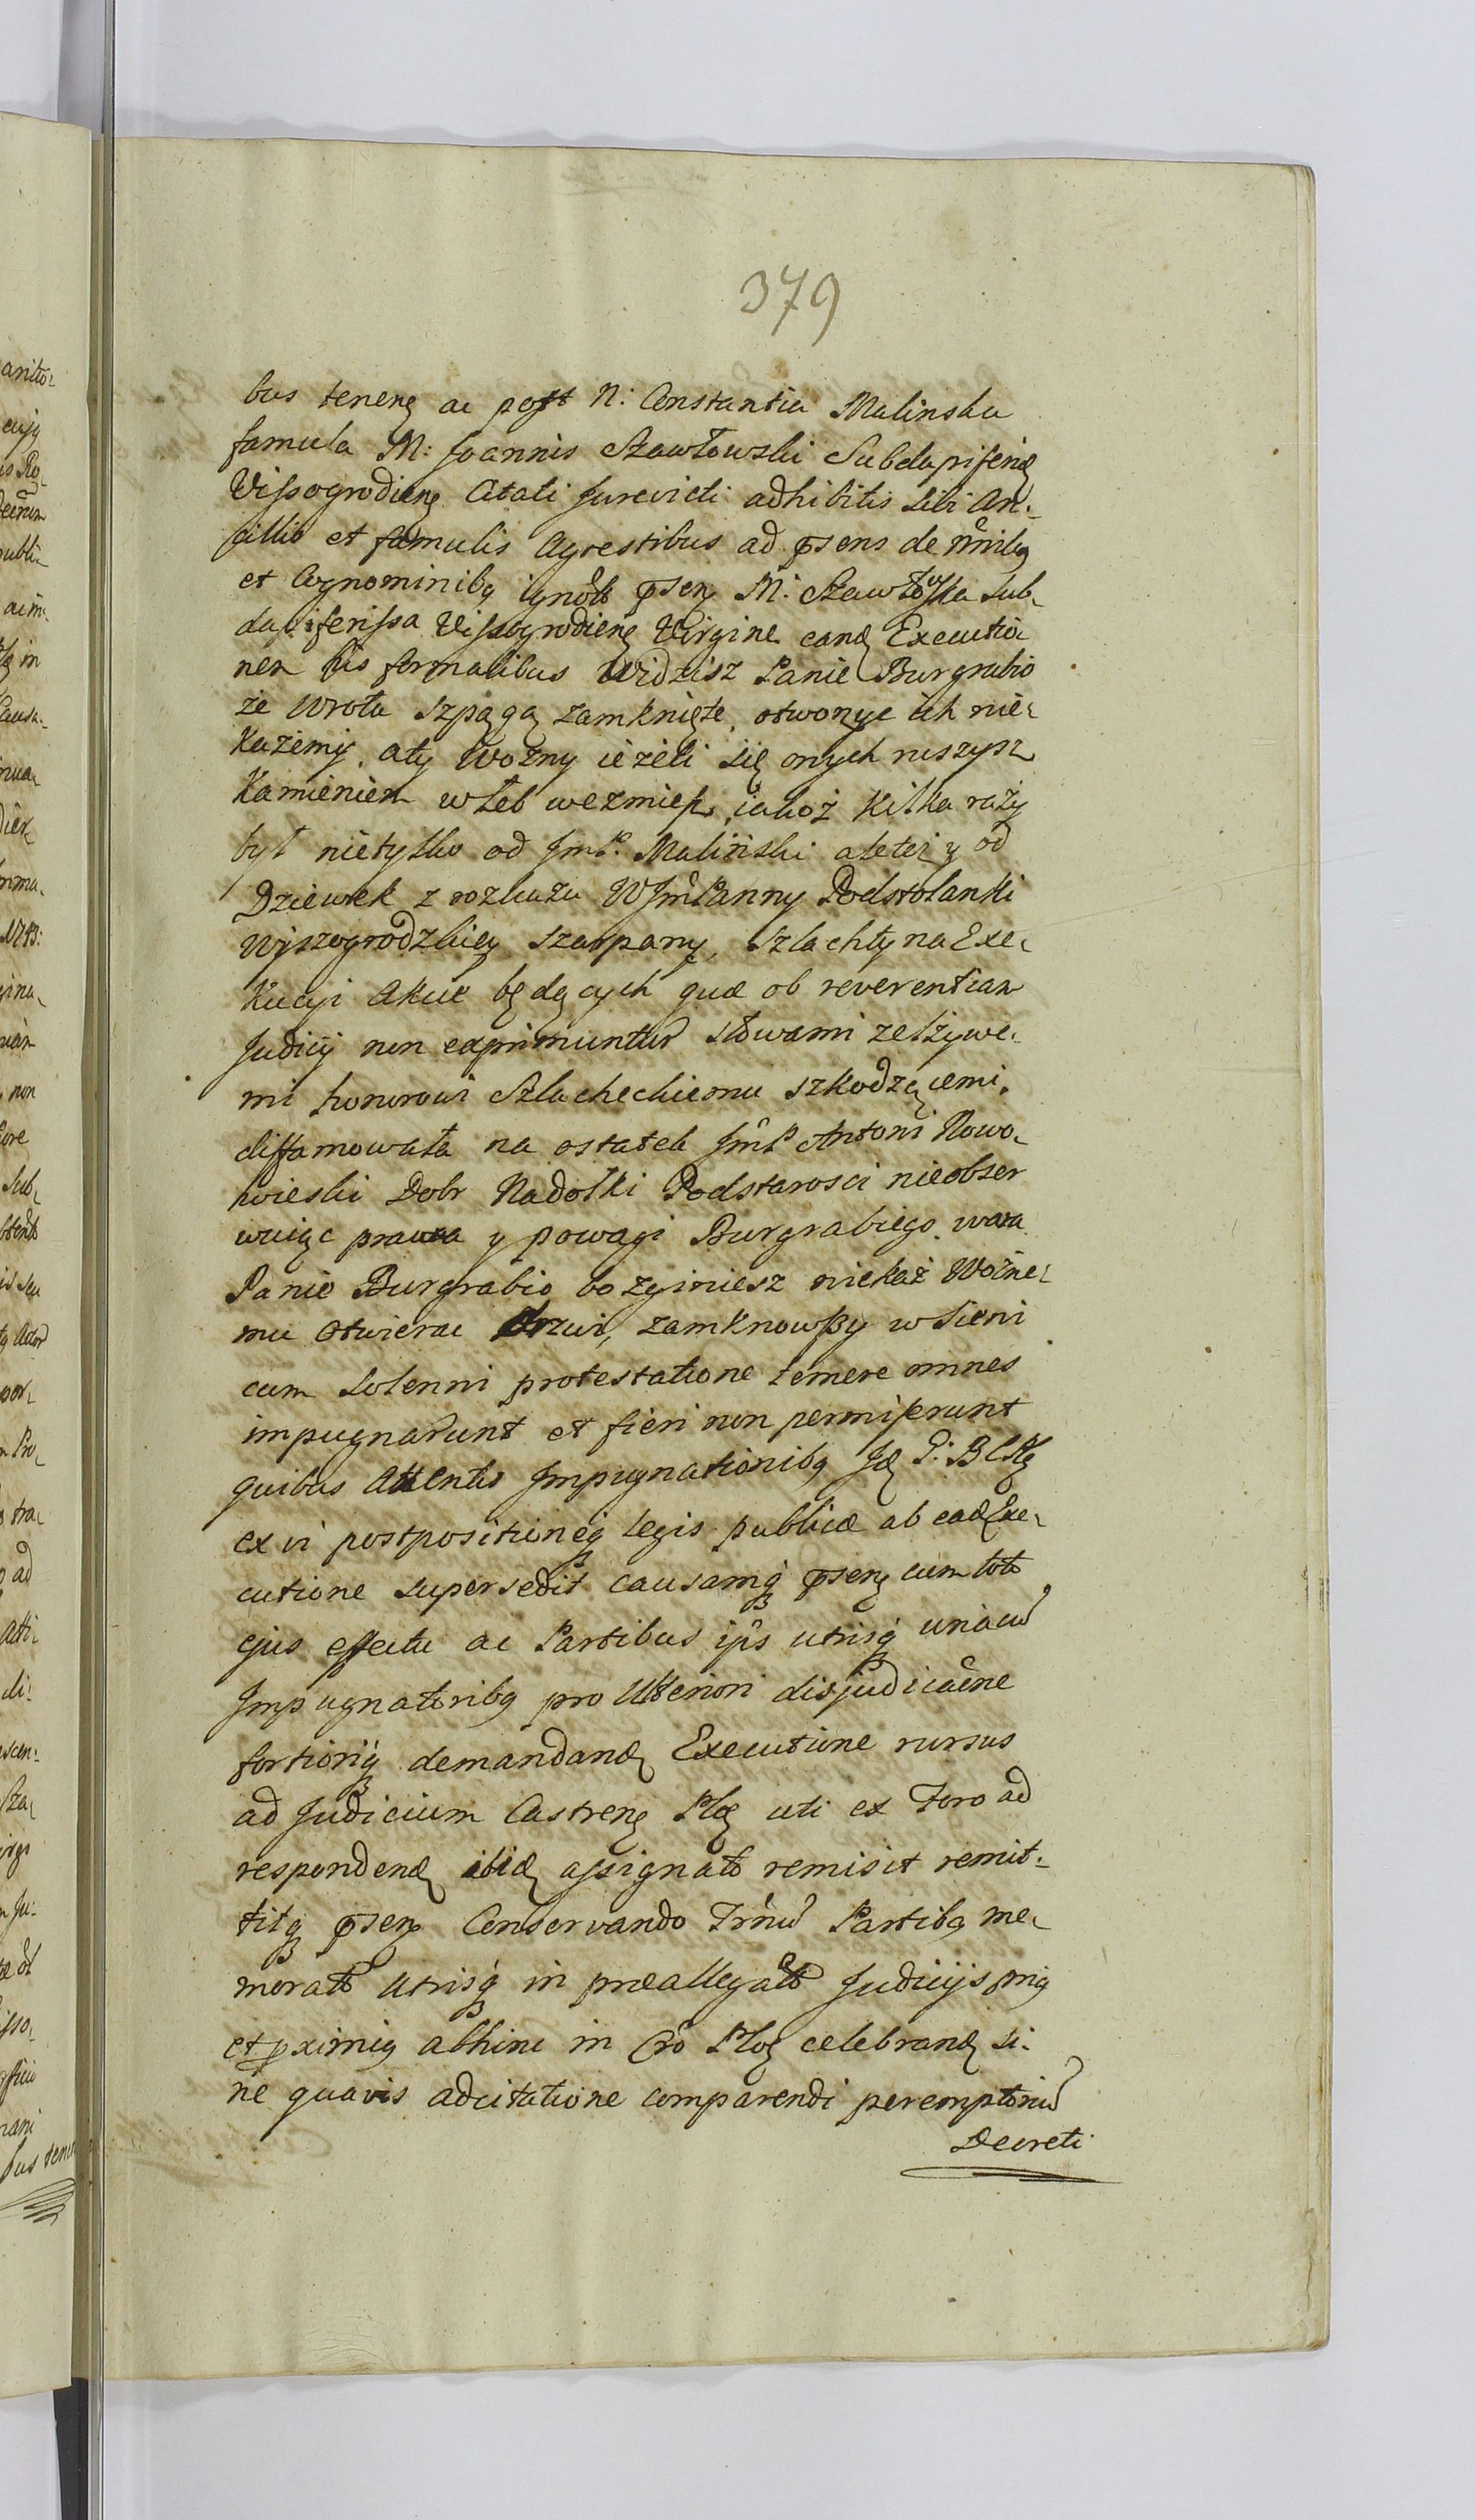 379
bus tenenę ac post N: Constantia Malinska
famula M: Joannis Szawłowski Subdapiferię
Vissogrodienę Citati Jurevicti adhibitis sibi An-
cillis et famulis Agrestibus ad pñsens de nñnibq
et Cognominibq ignotis pñsenę M: Szawłowska Sub-
dapiferissa Vissogrodienę Virgine eandę Executio
nem his formalibus Widzisz Panie Burgrabio
że wrota szpągą zamknięte, otworzyc ich nie-
każemy, aty Wozny ieżeli się onych ruszysz
Kamieniem w łeb wezmiesz, iakoż kilka razy
był nietylko od JmP. Malinski ale też y od
Dziewek z rozkazu WJmPanny Podstolanki
Wyszogrodzkiey szarpany, szlachty na Exe-
kucyi Akuie będących quæ ob reverentiam
Judicij non exprimuntur słowami zelżywe-
mi honorowi Szlacheckiemu szkodzącemi,
diffamowała na ostatek JmP Antoni Nowo-
wieski Dobr Nadołki Podstarosci nieobser
wuiąc prawa y powagi Burgrabiego, wara
Panie Burgrabio bo zginiesz niekaż Wozne-
mu otwierac drzwi, zamknowszy w sieni
cum solenni protestatione temere omnes
impugnarunt et fieri non permiserunt
quibus Attentis Impugnationibq Jdę P: BCPlę
ex vi postpositioneq legis publicæ ab eadę Exe-
cutione supersedit causamq pñsenę cum toto
ejus effectu ac Partibus ipñs utrisq unacum
Impugnatoribq pro Ulteriori disjudicañne
fortioriq demandandę Executione rursus
ad Judicium Castrenę Plę uti ex Foro ad
respondendę ibidę assignato remisit remit-
titq pñsenę Conservando Trñum Partibq me-
moratis utrisq in præallegatis Judicijs priq
et pximiq abhinc in Cro Ploę celebrandę si-
ne quavis adcitatione comparendi peremptorium
Decreti